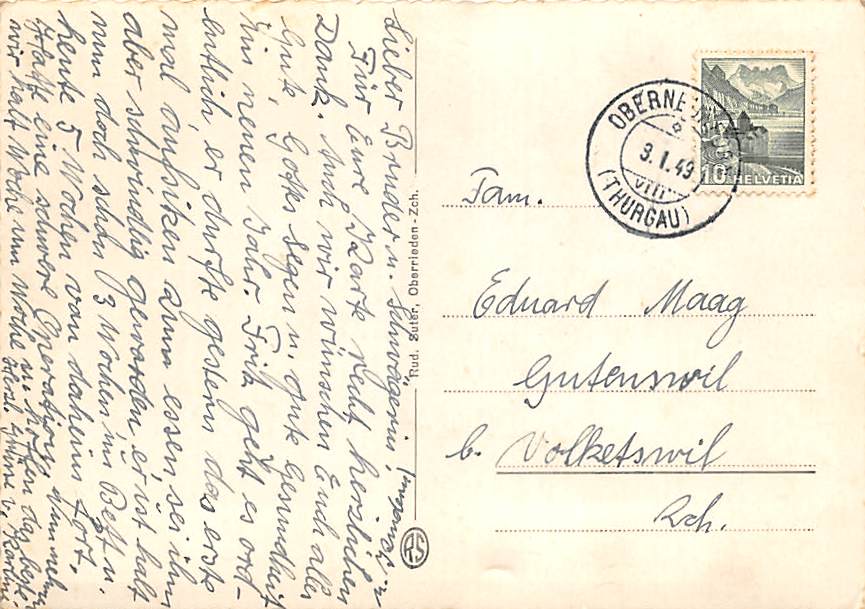 Lieber Bruder u. Schwägerin,
Für Eure Karte recht herzlichen
Dank. Auch wir wünschen Euch alles
Gute, Gottes Segen u. gute Gesundheit
im neuen Jahr. Fritz geht es ord-
entlich, er durfte gestern das erste
mal aufsitzen zum essen, sei ihm
aber schwindlig geworden, er ist halt
nun doch schon 3 Wochen im Bett u.
heute 5 Wochen von daheim fort.
Hatte eine schwere Operation, nun
wir halt Woche um Woche u. hoffen das beste.
Herzl. Grüsse v.
Rud. Suter, Oberrieden-Zch.
RS
OBERNEUN
3.I.49
VIII
(THURGAU)
10 HELVETIA
Fam.
Eduard Maag
Gutenswil
b. Volketswil
Zch.